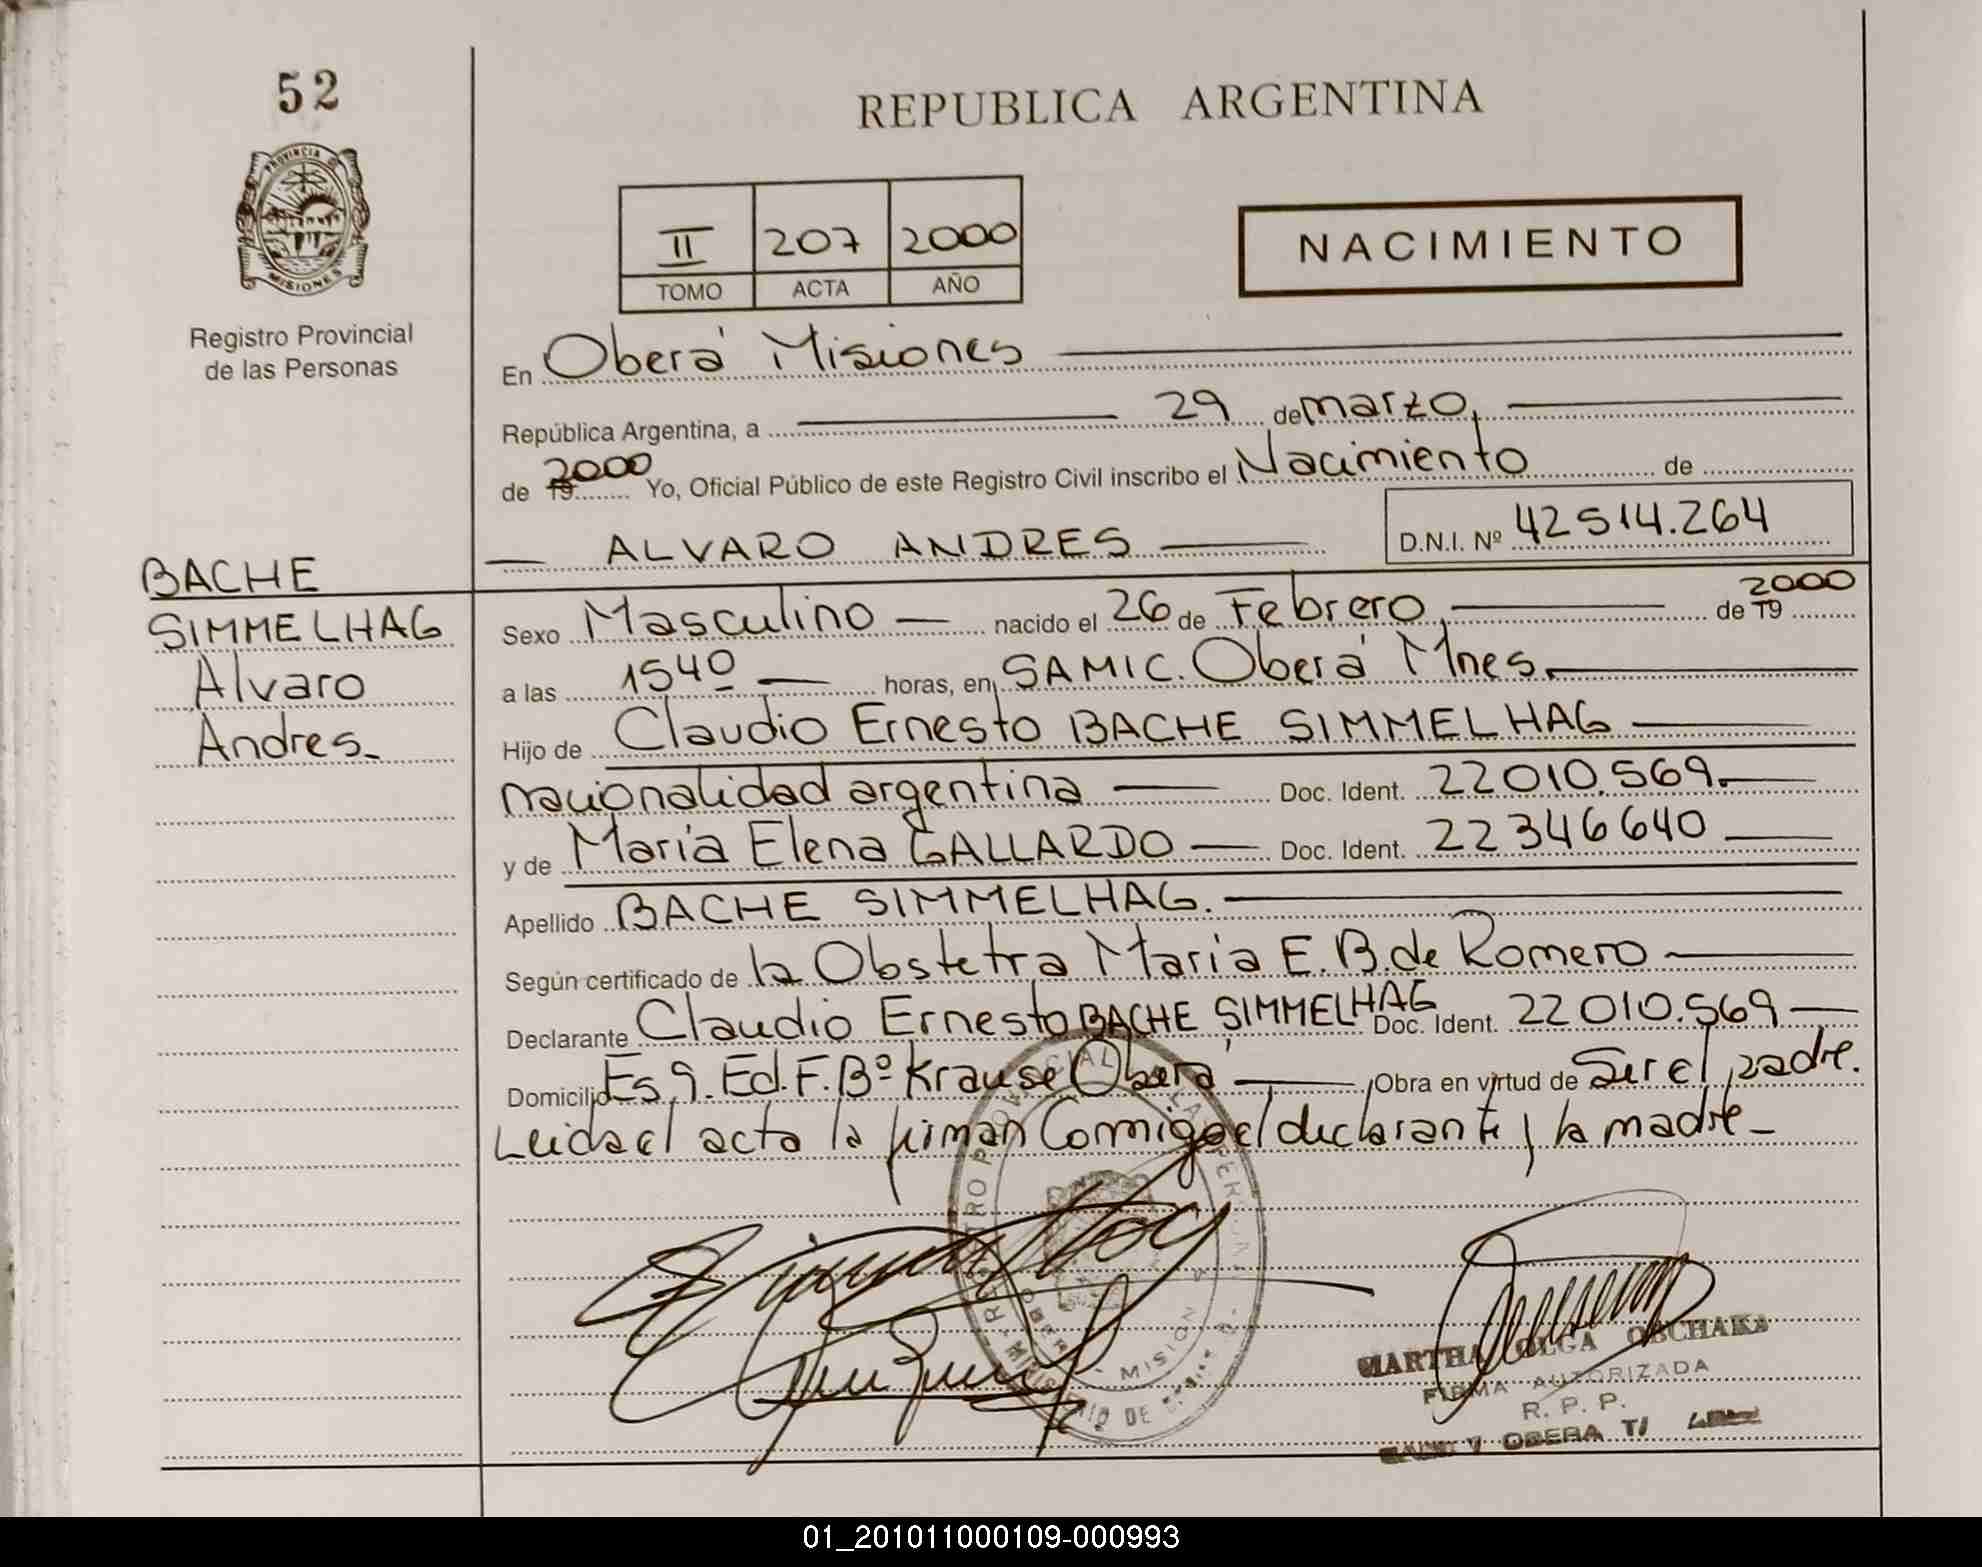 52
REPUBLICA ARGENTINA
PROVINCIA DE
MISIONES
Registro Provincial
de las Personas
II 207 2000
TOMO ACTA AÑO
NACIMIENTO
En Oberá Misiones
República Argentina, a 29 de marzo,
de 19 2000 Yo, Oficial Público de este Registro Civil inscribo el Nacimiento de
ALVARO ANDRES D.N.I. Nº 42514.264
BACHE
SIMMELHAG
Alvaro
Andres
Sexo Masculino nacido el 26 de Febrero de 19 2000
a las 1540 horas, en SAMIC. Oberá Mnes.
Hijo de Claudio Ernesto BACHE SIMMELHAG
nacionalidad argentina Doc. Ident. 22010.569
y de María Elena GALLARDO Doc. Ident. 22346640
Apellido BACHE SIMMELHAG.
Según certificado de la Obstetra Maria E. B. de Romero
Declarante Claudio Ernesto BACHE SIMMELHAG Doc. Ident. 22010.569
Domicilio Es 9. Ed. F. Bº Krause Oberá Obra en virtud de Ser el padre.
Leida el acta la firman Conmigo el declarante y la madre
MARTHA OLGA OBCHAKA
FIRMA AUTORIZADA
R. P. P.
OBERA
01_201011000109-000993